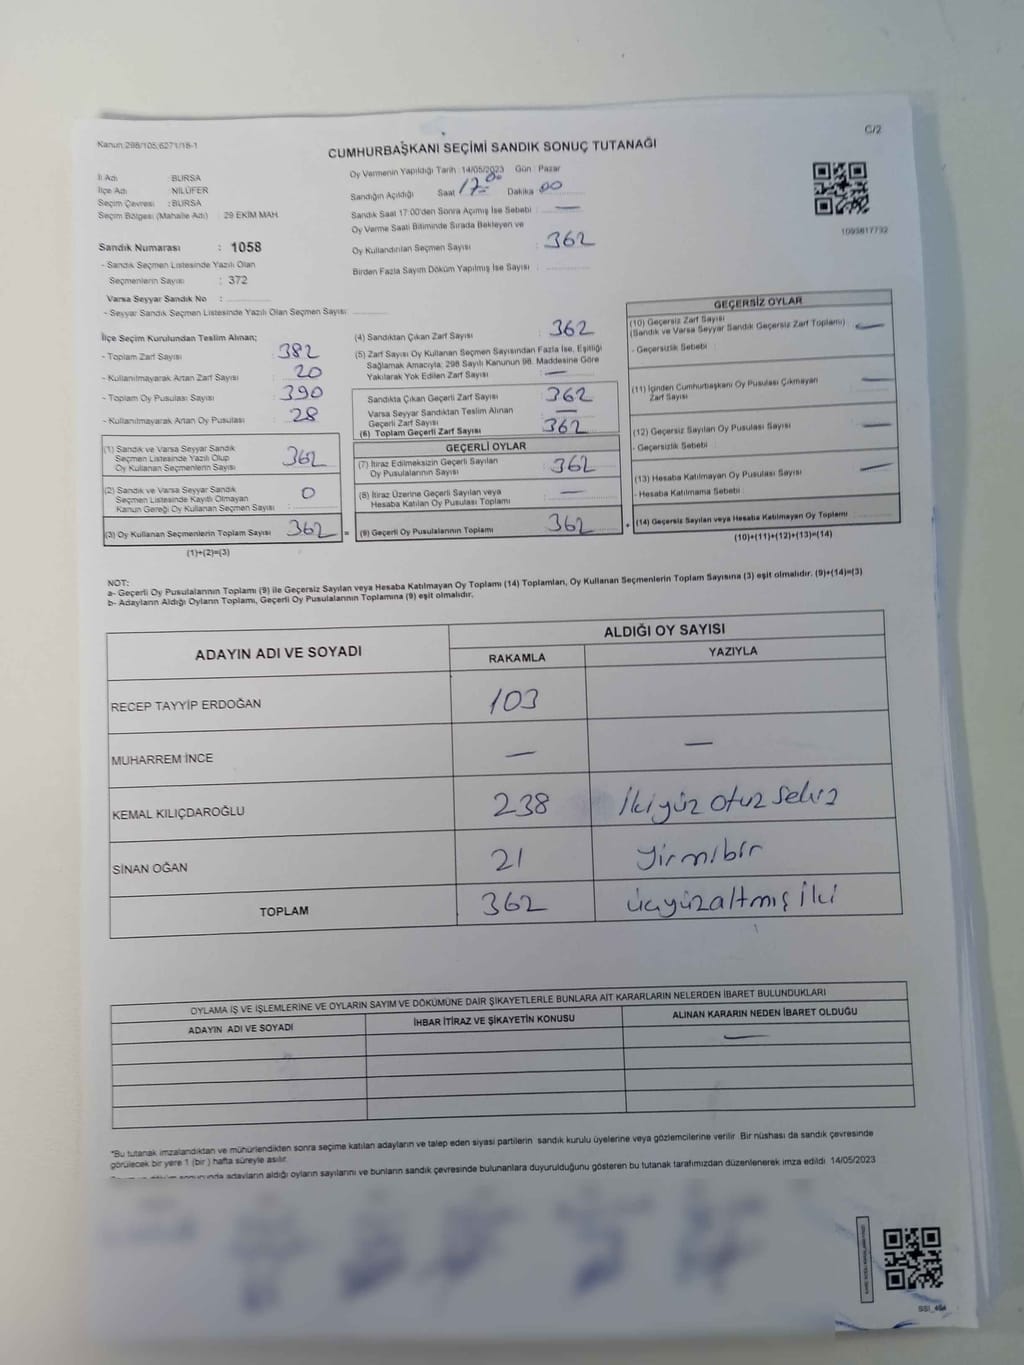 Kanun:298/105;6271/18-1
C/2
CUMHURBAŞKANI SEÇİMİ SANDIK SONUÇ TUTANAĞI
İl Adı : BURSA
İlçe Adı : NİLÜFER
Seçim Çevresi : BURSA
Seçim Bölgesi (Mahalle Adı) : 29 EKİM MAH.
Sandık Numarası : 1058
- Sandık Seçmen Listesinde Yazılı Olan
Seçmenlerin Sayısı : 372
Varsa Seyyar Sandık No :
- Seyyar Sandık Seçmen Listesinde Yazılı Olan Seçmen Sayısı :
Oy Vermenin Yapıldığı Tarih :14/05/2023 Gün : Pazar
Sandığın Açıldığı Saat 17 00 Dakika 00
Sandık Saat 17:00'den Sonra Açımış İse Sebebi : —
Oy Verme Saati Bitiminde Sırada Bekleyen ve
Oy Kullandırılan Seçmen Sayısı : 362
Birden Fazla Sayım Döküm Yapılmış İse Sayısı :
1093817732
İlçe Seçim Kurulundan Teslim Alınan;
- Toplam Zarf Sayısı : 382
- Kullanılmayarak Artan Zarf Sayısı : 20
- Toplam Oy Pusulası Sayısı : 390
- Kullanılmayarak Artan Oy Pusulası : 28
(1) Sandık ve Varsa Seyyar Sandık
Seçmen Listesinde Yazılı Olup
Oy Kullanan Seçmenlerin Sayısı : 362
(2) Sandık ve Varsa Seyyar Sandık
Seçmen Listesinde Kayıtlı Olmayan
Kanun Gereği Oy Kullanan Seçmen Sayısı : 0
(3) Oy Kullanan Seçmenlerin Toplam Sayısı 362 =
(1)+(2)=(3)
(4) Sandıktan Çıkan Zarf Sayısı : 362
(5) Zarf Sayısı Oy Kullanan Seçmen Sayısından Fazla İse, Eşitliği
Sağlamak Amacıyla; 298 Sayılı Kanunun 98. Maddesine Göre
Yakılarak Yok Edilen Zarf Sayısı : —
Sandıkta Çıkan Geçerli Zarf Sayısı : 362
Varsa Seyyar Sandıktan Teslim Alınan
Geçerli Zarf Sayısı : —
(6) Toplam Geçerli Zarf Sayısı : 362
GEÇERLİ OYLAR
(7) İtiraz Edilmeksizin Geçerli Sayılan
Oy Pusulalarının Sayısı : 362
(8) İtiraz Üzerine Geçerli Sayılan veya
Hesaba Katılan Oy Pusulası Toplamı : —
(9) Geçerli Oy Pusulalarının Toplamı : 362 +
GEÇERSİZ OYLAR
(10) Geçersiz Zarf Sayısı
(Sandık ve Varsa Seyyar Sandık Geçersiz Zarf Toplamı) : —
- Geçersizlik Sebebi :
(11) İçinden Cumhurbaşkanı Oy Pusulası Çıkmayan
Zarf Sayısı : —
(12) Geçersiz Sayılan Oy Pusulası Sayısı : —
- Geçersizlik Sebebi :
(13) Hesaba Katılmayan Oy Pusulası Sayısı : —
- Hesaba Katılmama Sebebi :
(14) Geçersiz Sayılan veya Hesaba Katılmayan Oy Toplamı :
(10)+(11)+(12)+(13)=(14)
NOT:
a- Geçerli Oy Pusulalarının Toplamı (9) ile Geçersiz Sayılan veya Hesaba Katılmayan Oy Toplamı (14) Toplamları, Oy Kullanan Seçmenlerin Toplam Sayısına (3) eşit olmalıdır. (9)+(14)=(3)
b- Adayların Aldığı Oyların Toplamı, Geçerli Oy Pusulalarının Toplamına (9) eşit olmalıdır.
ADAYIN ADI VE SOYADI
ALDIĞI OY SAYISI
RAKAMLA YAZIYLA
RECEP TAYYİP ERDOĞAN 103
MUHARREM İNCE — —
KEMAL KILIÇDAROĞLU 238 İkiyüz otuz sekiz
SİNAN OĞAN 21 yirmibir
TOPLAM 362 üçyüzaltmış iki
OYLAMA İŞ VE İŞLEMLERİNE VE OYLARIN SAYIM VE DÖKÜMÜNE DAİR ŞİKAYETLERLE BUNLARA AİT KARARLARIN NELERDEN İBARET BULUNDUKLARI
ADAYIN ADI VE SOYADI İHBAR İTİRAZ VE ŞİKAYETİN KONUSU ALINAN KARARIN NEDEN İBARET OLDUĞU
—
*Bu tutanak imzalandıktan ve mühürlendikten sonra seçime katılan adayların ve talep eden siyasi partilerin sandık kurulu üyelerine veya gözlemcilerine verilir. Bir nüshası da sandık çevresinde
görülecek bir yere 1 (bir ) hafta süreyle asılır.
adayların aldığı oyların sayılarını ve bunların sandık çevresinde bulunanlara duyurulduğunu gösteren bu tutanak tarafımızdan düzenlenerek imza edildi. 14/05/2023